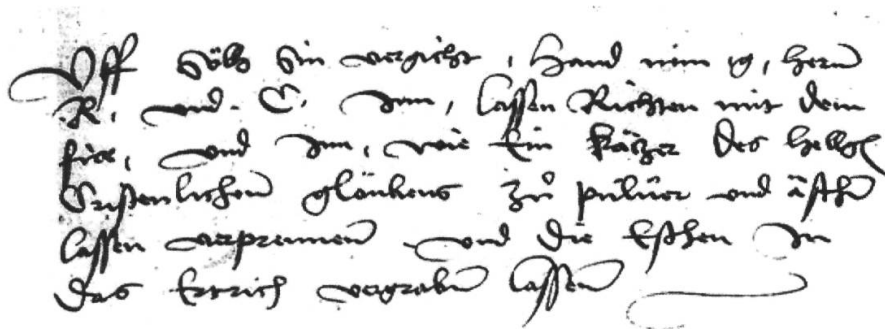 Vff Sölh Sin vergicht, Hand min g, herrn
R, vnd C, Inn, lassen Richten mit dem
für, vnd Inn, wie Ein kätzer des helgen
Cristenlichen glöubens zů puluer vnd äschen
lassen verprennen vnd die Eschen In
das Ertrich vergraben lassen